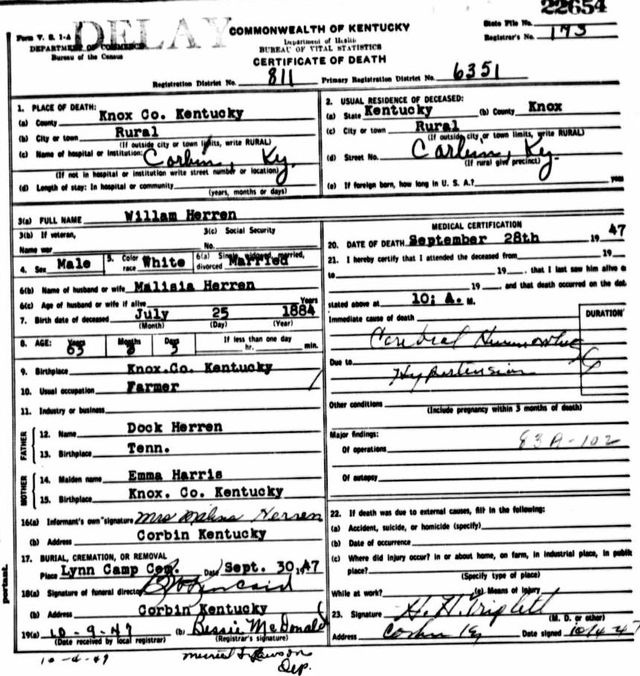 22654
Form V. S. 1-A
DELAY
COMMONWEALTH OF KENTUCKY
State File No.
DEPARTMENT OF COMMERCE
Department of Health
Registrar's No. 173
Bureau of the Census
BUREAU OF VITAL STATISTICS
CERTIFICATE OF DEATH
Registration District No. 811 Primary Registration District No. 6351
1. PLACE OF DEATH:
(a) County Knox Co. Kentucky
(b) City or town Rural
(If outside city or town limits, write RURAL)
(c) Name of hospital or institution: Corbin, Ky.
(If not in hospital or institution write street number or location)
(d) Length of stay: In hospital or community
(years, months or days)
2. USUAL RESIDENCE OF DECEASED:
(a) State Kentucky (b) County Knox
(c) City or town Rural
(If outside city or town limits, write RURAL)
(d) Street No. Corbin, Ky.
(If rural give precinct)
(e) If foreign born, how long in U. S. A.? years
3(a) FULL NAME Willam Herren
3(b) If veteran,
Name war
3(c) Social Security
No.
4. Sex Male 5. Color race White 6(a) Single, widowed, married, divorced Married
6(b) Name of husband or wife Malisia Herren
6(c) Age of husband or wife if alive Years
7. Birth date of deceased July 25 1884
(Month) (Day) (Year)
8. AGE: Years 63 Months Days 3 If less than one day
hr. min.
9. Birthplace Knox.Co. Kentucky
10. Usual occupation Farmer
11. Industry or business
FATHER
12. Name Dock Herren
13. Birthplace Tenn.
MOTHER
14. Maiden name Emma Harris
15. Birthplace Knox. Co. Kentucky
16(a) Informant's own signature Mrs Herren
(b) Address Corbin Kentucky
17. BURIAL, CREMATION, OR REMOVAL
Place Lynn Camp Cem. Date Sept. 30,47
18(a) Signature of funeral director
(b) Address Corbin Kentucky
19(a) 10-9-47 (b) Bessie McDonald
(Date received by local registrar) (Registrar's signature)
10-4-47
Dep.
portant.
MEDICAL CERTIFICATION
20. DATE OF DEATH September 28th 19 47
21. I hereby certify that I attended the deceased from 19
to 19 , that I last saw him alive
19 and that death occurred on the date
stated above at 10; A. M.
Immediate cause of death
DURATION
Cerebral Hemorrhage
Due to
Hypertension
Other conditions
(Include pregnancy within 3 months of death)
Major findings:
Of operations
83A-102
Of autopsy
22. If death was due to external causes, fill in the following:
(a) Accident, suicide, or homicide (specify)
(b) Date of occurrence
(c) Where did injury occur? in or about home, on farm, in industrial place, in public
place?
(Specify type of place)
While at work? (e) Means of injury
23. Signature H. H. Triplett
(M. D. or other)
Address Corbin Ky Date signed 10/4 47